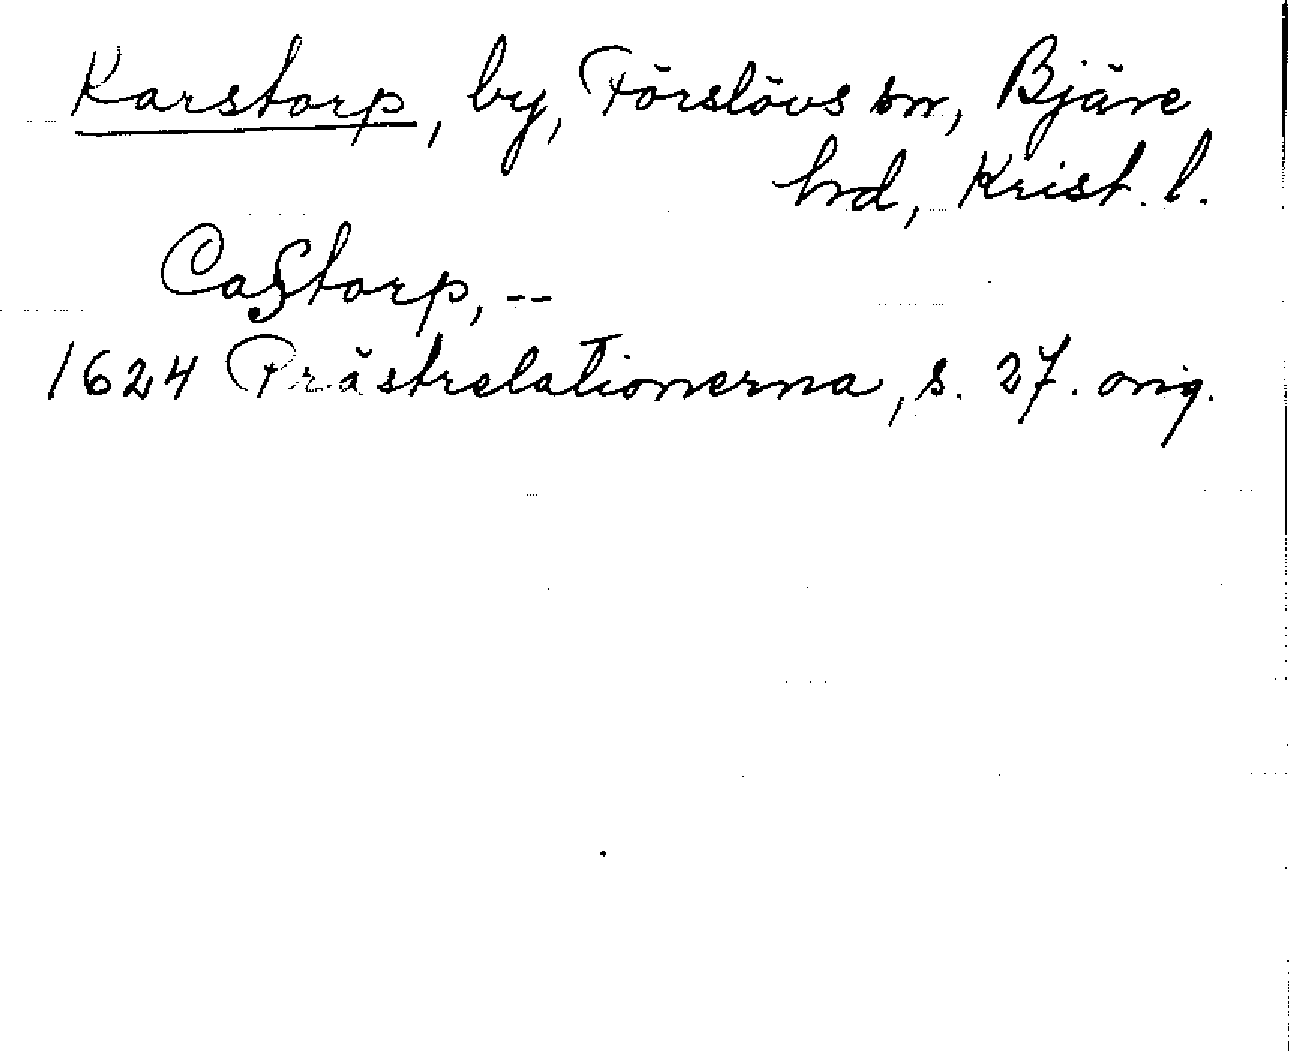 Karstorp, by, Förslövs sn, Bjäre
hrd, Krist. l.
Caßtorp, --
1624 Prästrelationerna, s. 27. orig.